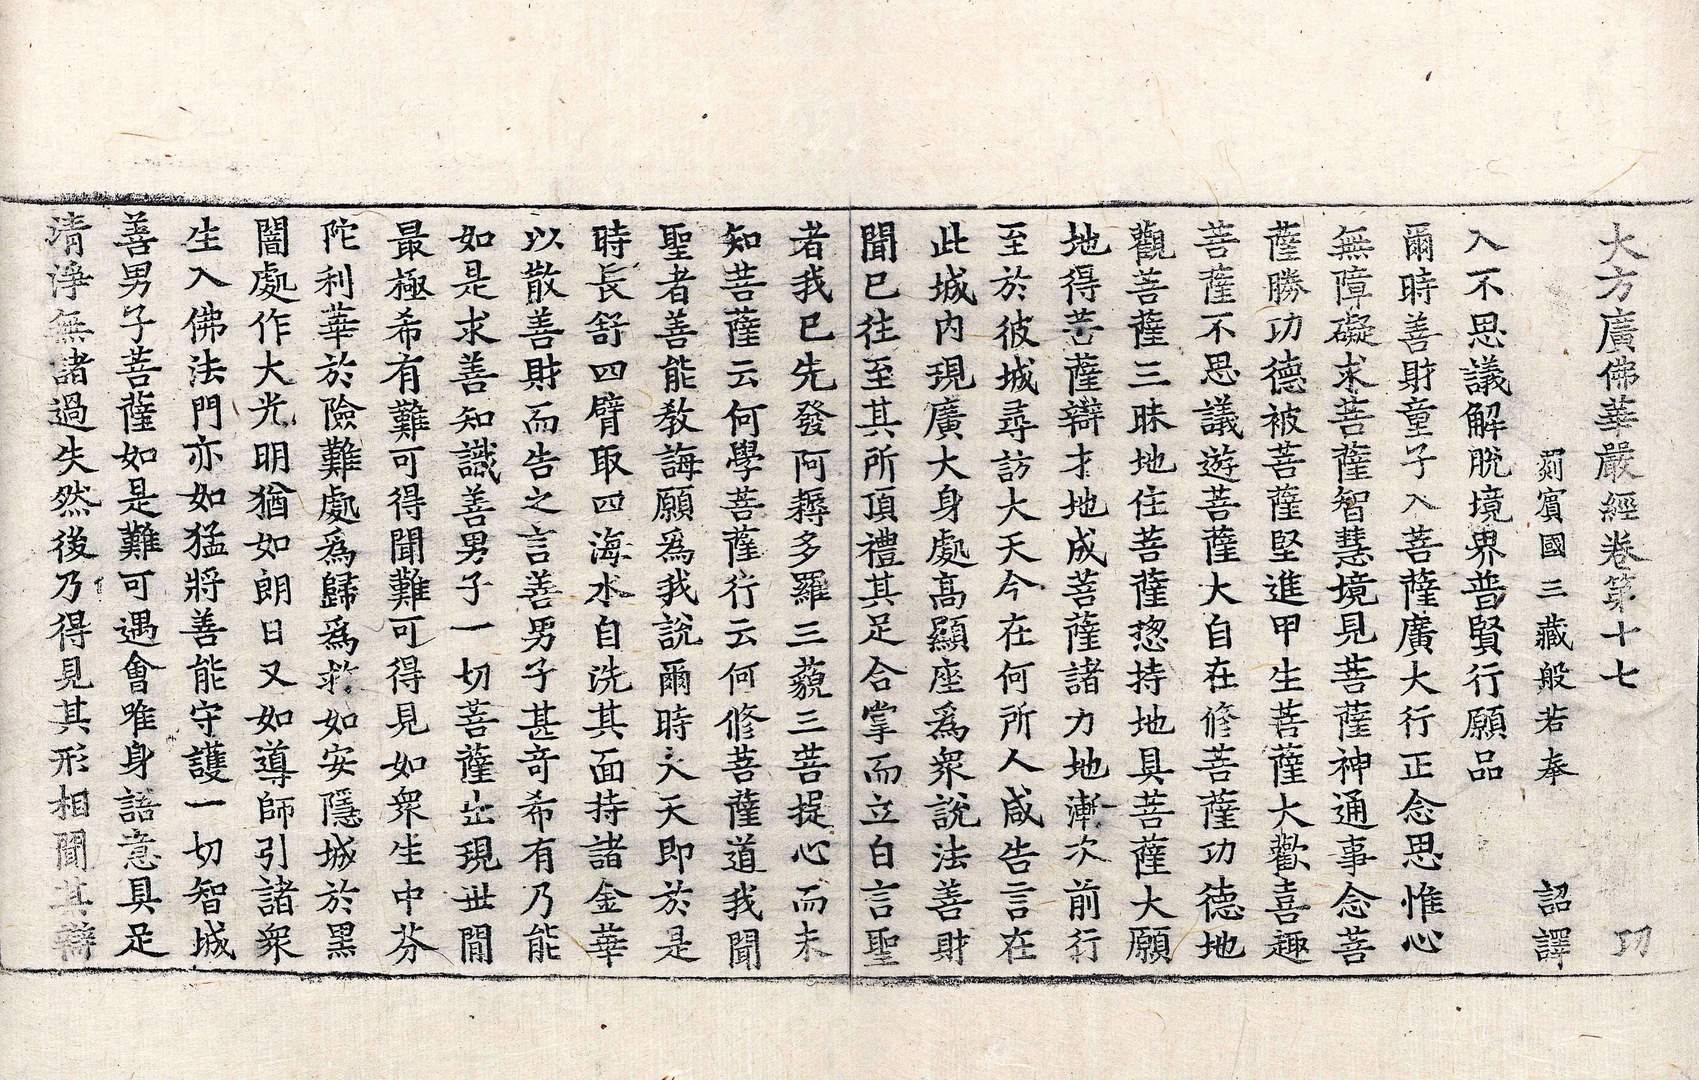 大方廣佛華嚴經卷第十七 功
罽賓國三藏般若奉 詔譯
入不思議解脫境界普賢行願品
爾時善財童子入菩薩廣大行正念思惟心
無障礙求菩薩智慧境見菩薩神通事念菩
薩勝功德被菩薩堅進甲生菩薩大歡喜趣
菩薩不思議遊菩薩大自在修菩薩功德地
觀菩薩三昧地住菩薩揔持地具菩薩大願
地得菩薩辯才地成菩薩諸力地漸次前行
至於彼城尋訪大天今在何所人咸告言在
此城內現廣大身處高顯座爲衆說法善財
聞已往至其所頂禮其足合掌而立白言聖
者我已先發阿耨多羅三藐三菩提心而未
知菩薩云何學菩薩行云何修菩薩道我聞
聖者善能教誨願爲我說爾時大天即於是
時長舒四臂取四海水自洗其面持諸金華
以散善財而告之言善男子甚奇希有乃能
如是求善知識善男子一切菩薩出現世間
最極希有難可得聞難可得見如衆生中芬
陀利華於險難處爲歸爲救如安隱城於黑
闇處作大光明猶如朗日又如導師引諸衆
生入佛法門亦如猛將善能守護一切智城
善男子菩薩如是難可遇會唯身語意具足
清淨無諸過失然後乃得見其形相聞其辯